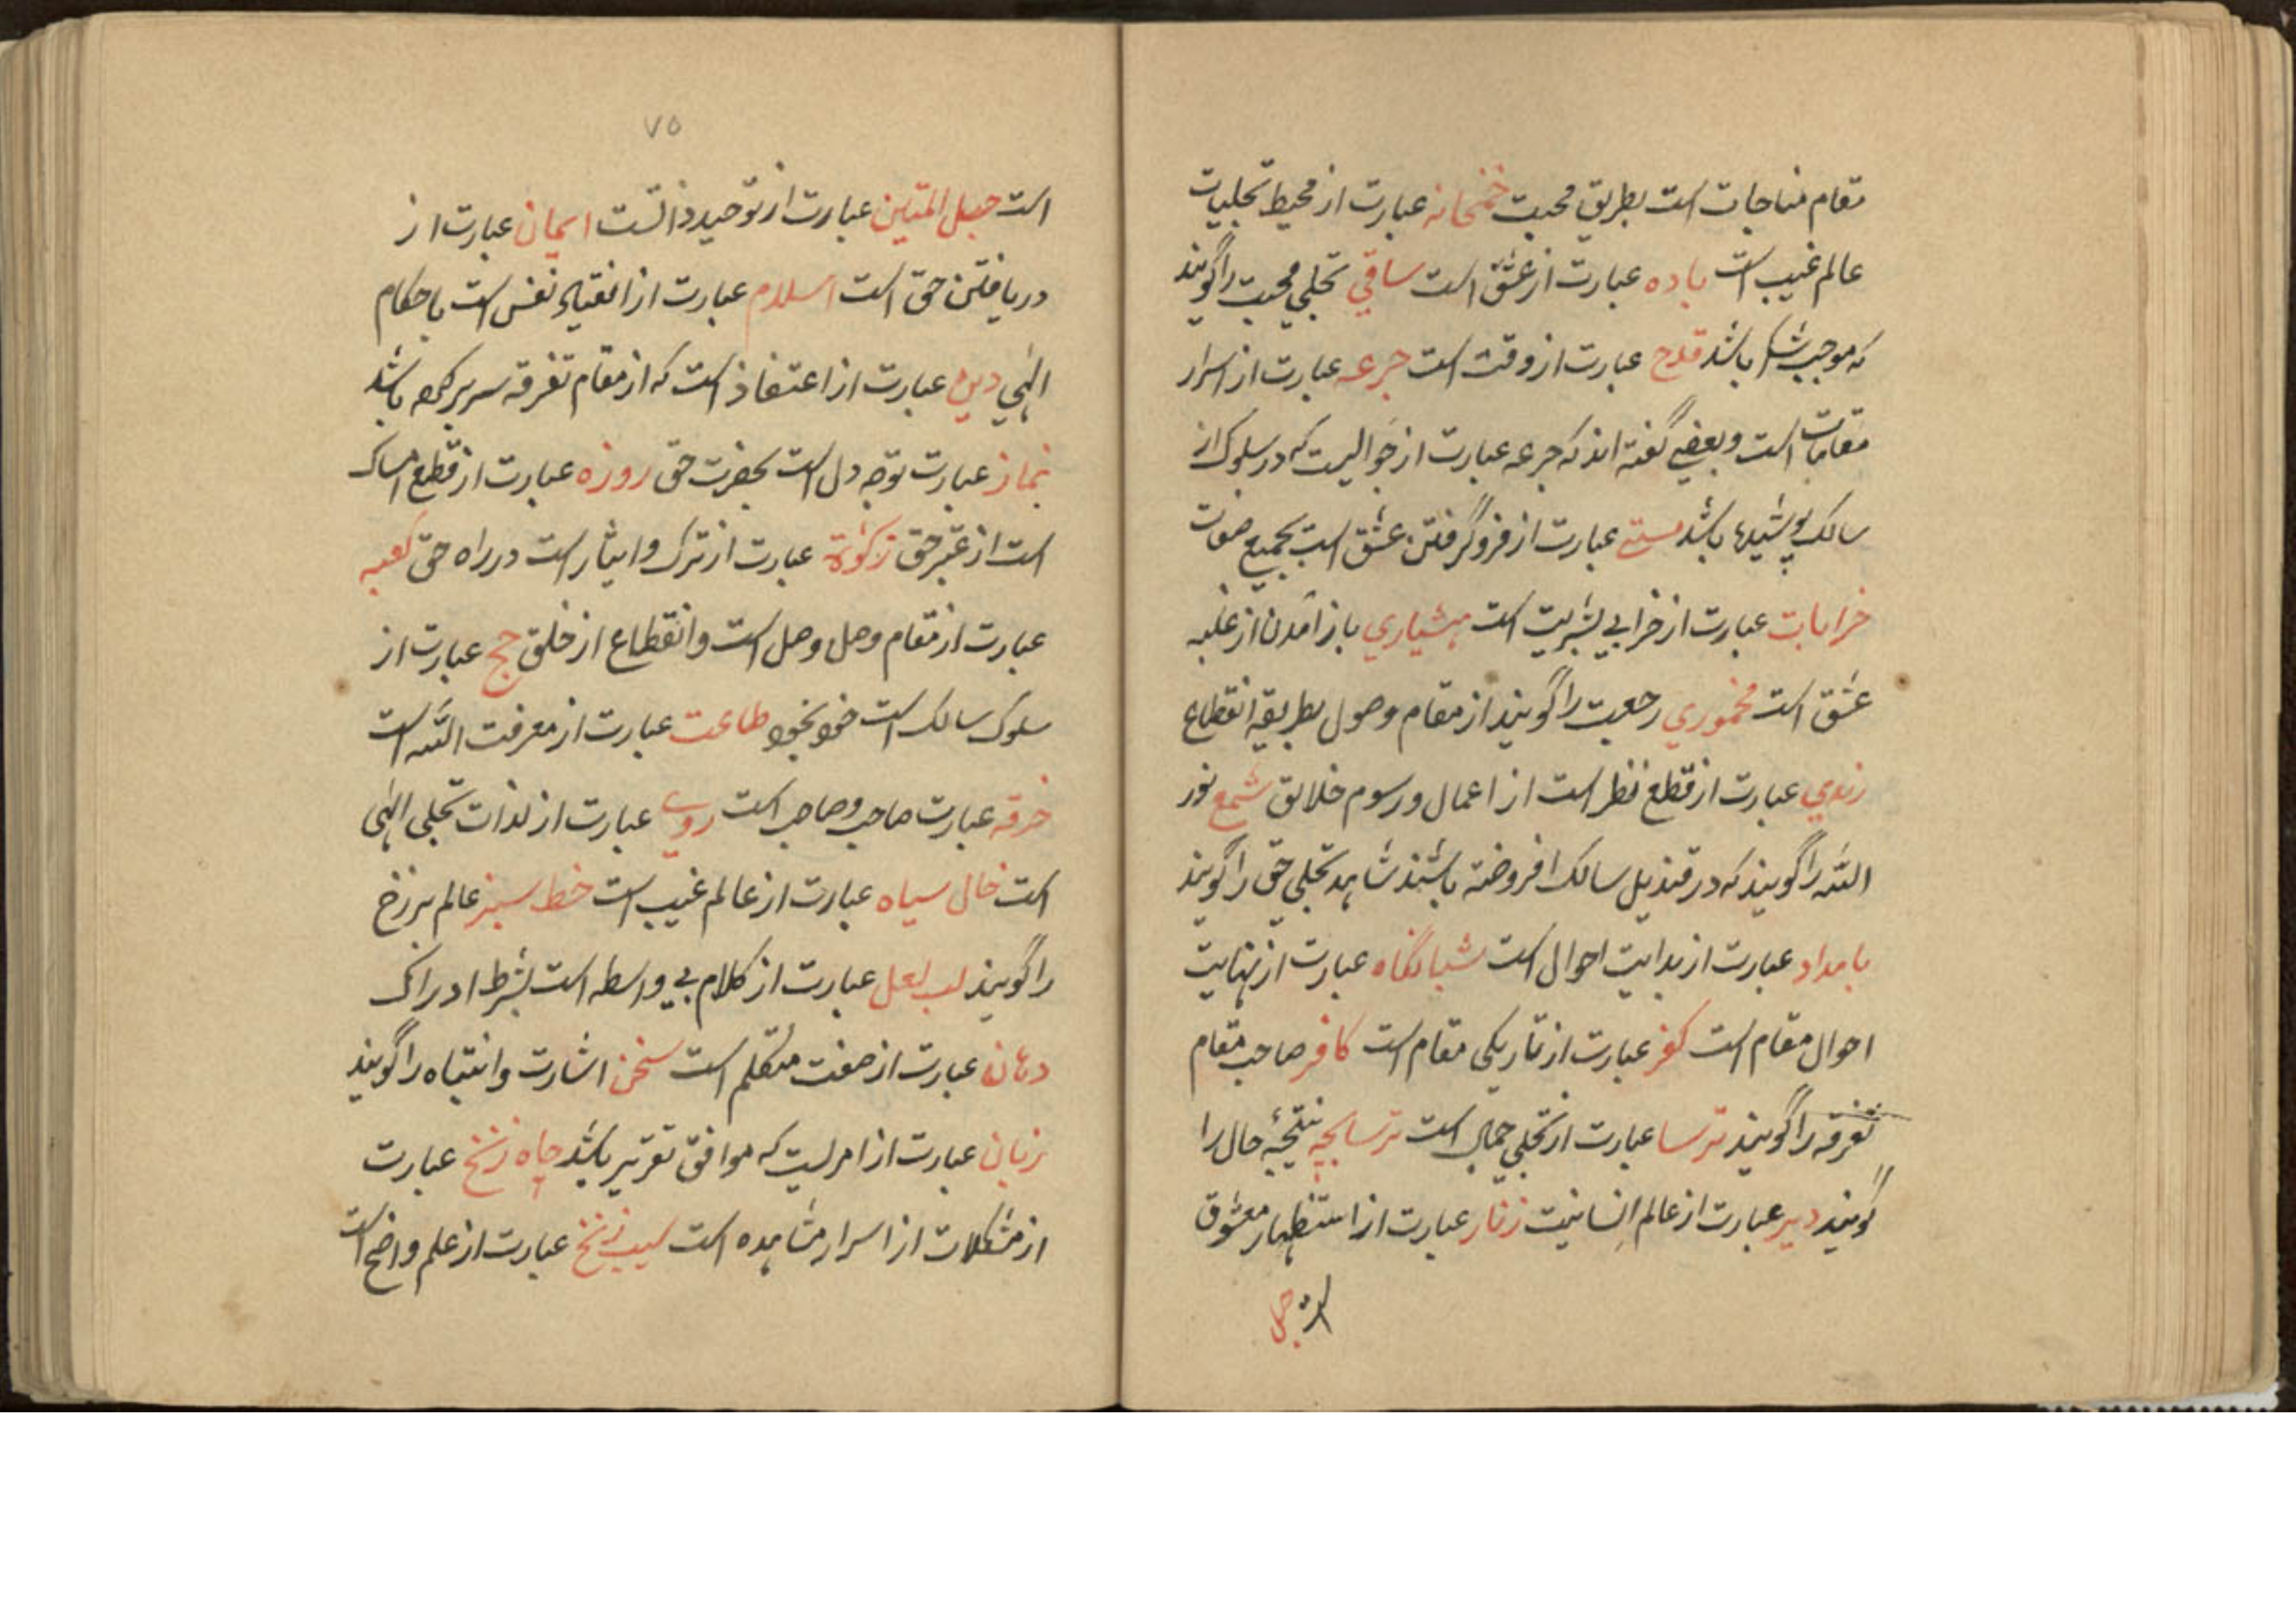 مقام مناجات است بطریق محبت خمخانه عبارت از محیط تجلیات
عالم غیب است باده عبارت از عشق است ساقی تجلی محبت را گویند
که موجب شکر باشد قدح عبارت از وقت است جرعه عبارت از اسرار
مقامات است و بعضی گفته اند که جرعه عبارت از حوالیست که در سلوک از
سالک پوشیدها باشد مستی عبارت از فرو گرفتن عشق است بجمیع صفات
خرابات عبارت از خرابی بشریت است هشیاری باز آمدن از غلبه
عشق است مخموری رجعت را گویند از مقام وصول بطریقه انقطاع
رندی عبارت از قطع نظر است از اعمال و رسوم خلایق شمع نور
الله را گویند که در قندیل سالک افروخته باشند شاهد تجلی حق را گویند
بامداد عبارت از بدایت احوال است شبانگاه عبارت از نهایت
احوال مقام است کفر عبارت از تاریکی مقام است کافر صاحب مقام
تفرقه را گویند ترسا عبارت از تجلی جمال است ترسابچه نتیجهٔ حال را
گویند دیر عبارت از عالم انسانیت زنار عبارت از استظهار معشوق
است حبل
۷۵
است حبل المتین عبارت از توحید ذاتست ایمان عبارت از
دریافتن حق است اسلام عبارت از انقیاد نفس است باحکام
الهی دین عبارت از اعتقاد است که از مقام تفرقه سر بر کرده باشد
نماز عبارت توجه دل است بحضرت حق روزه عبارت از قطع امساک
است از غیر حق زکوة عبارت از ترک و ایثار است در راه حق کعبه
عبارت از مقام وصل وصل است و انقطاع از خلق حج عبارت از
سلوک سالک است خود بخود طاعت عبارت از معرفت الله است
خرقه عبارت صاحب و صاحب است روی عبارت از لذات تجلی الهی
است خال سیاه عبارت از عالم غیب است خط سبز عالم برزخ
را گویند لب لعل عبارت از کلام بی واسطه است بشرط ادراک
دهان عبارت از صفت متکلم است سخن اشارت و انتباه را گویند
زبان عبارت از امریست که موافق تقریر باشد چاه زنخ عبارت
از مشکلات از اسرار مشاهده است سیب زنخ عبارت از علم واضح است